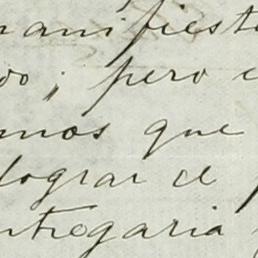 manifiesta
do; pero e
mos que
lograr el
ntregaria